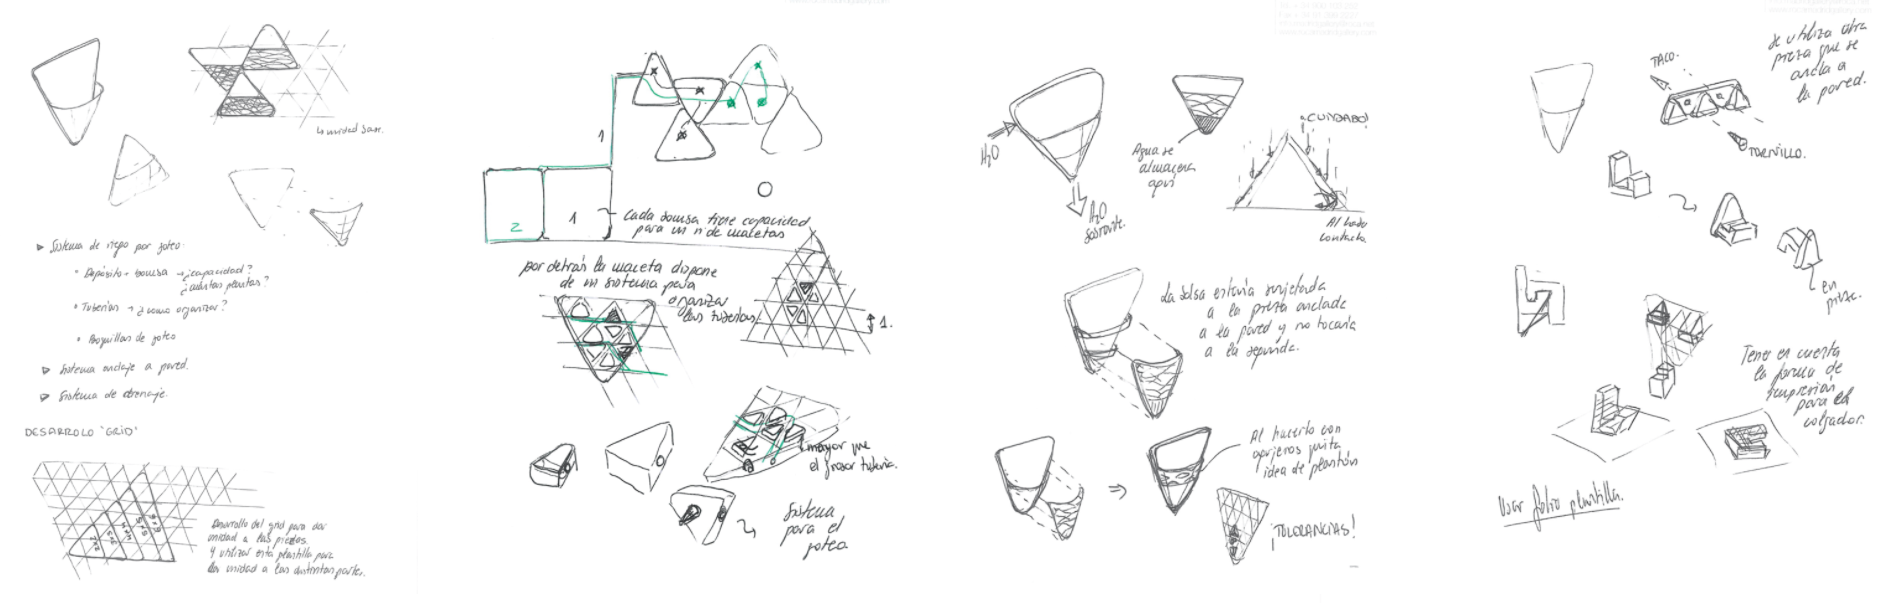 la unidad base.
▶ Sistema de riego por goteo:
• Depósito + bomba → ¿capacidad?
¿cuántas plantas?
• Tuberías → ¿como organizar?
• Boquillas de goteo
▶ Sistema anclaje a pared.
▶ Sistema de drenaje.
DESARROLO "GRID"
Desarrollo del grid para dar
unidad a las piezas.
Y utilizar esta plantilla para
dar unidad a las distintas partes.
1
2
1
Cada bomba tiene capacidad
para un nº de macetas
por detrás la maceta dispone
de un sistema para
organizar
las tuberías.
1.
mayor que
el grosor tubería.
Sistema
para el
goteo
H2O
H2O
sobrante.
Agua se
almacena
aquí
¡CUIDADO!
Al lado
contacto
La bolsa estaría sujetada
a la pieza anclada
a la pared y no tocaría
a la segunda.
Al hacerlo con
agujeros quita
idea de plantón
¡TOLERANCIAS!
Se utiliza otra
pieza que se
ancla a
la pared.
TACO.
TORNILLO.
en
Tener en cuenta
la forma de
impresión
para el
colgador.
Usar folio plantilla.